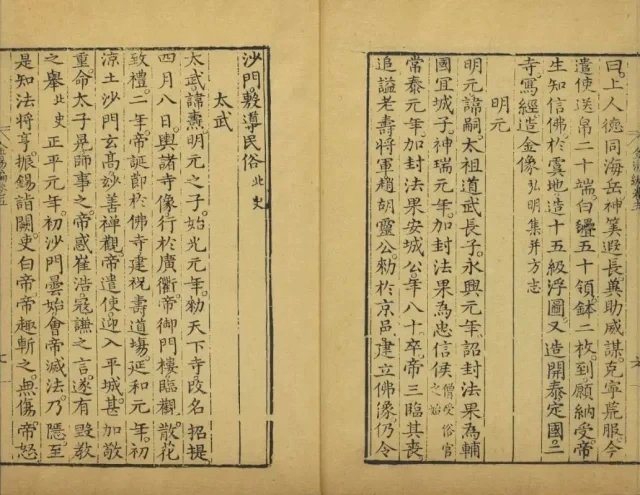 曰。上人德同海岳神筭遐長。冀助威謀克寧荒服。今
遣使送帛二十端。白氎五十領。鉢二枚。到願納受帝
生知信佛於虞地造十五級浮圖。又造開泰定國二
寺。寫經造金像 弘明集并方志
明元
明元諱嗣。太祖道武長子。永興元年詔封法果為輔
國宜城子。神瑞元年。加封法果為忠信侯 僧受俗官之始
常泰元年。加封法果安城公。年八十卒。帝三臨其喪
追諡老壽將軍趙胡靈公。勅於京邑。建立佛像。仍令
沙門。敷導民俗 北史
太武
太武諱燾。明元之子。始光元年。勅天下寺改名 招提
四月八日。輿諸寺像行於廣衢。帝御門樓臨觀 散花
致禮。二年。帝誕節。於佛寺建祝壽道場。延和元年。初
涼土沙門玄高。妙善禪觀。帝遣使迎入 平城。甚加敬
重。命太子晃師事之。帝惑崔浩。寇謙之言。遂有 毀教
之舉 北史 正平元年。初沙門曇始會帝滅法。乃 隱。至
是知法將亨。振錫詣闕。吏白帝。帝趣斬之。無傷。帝怒